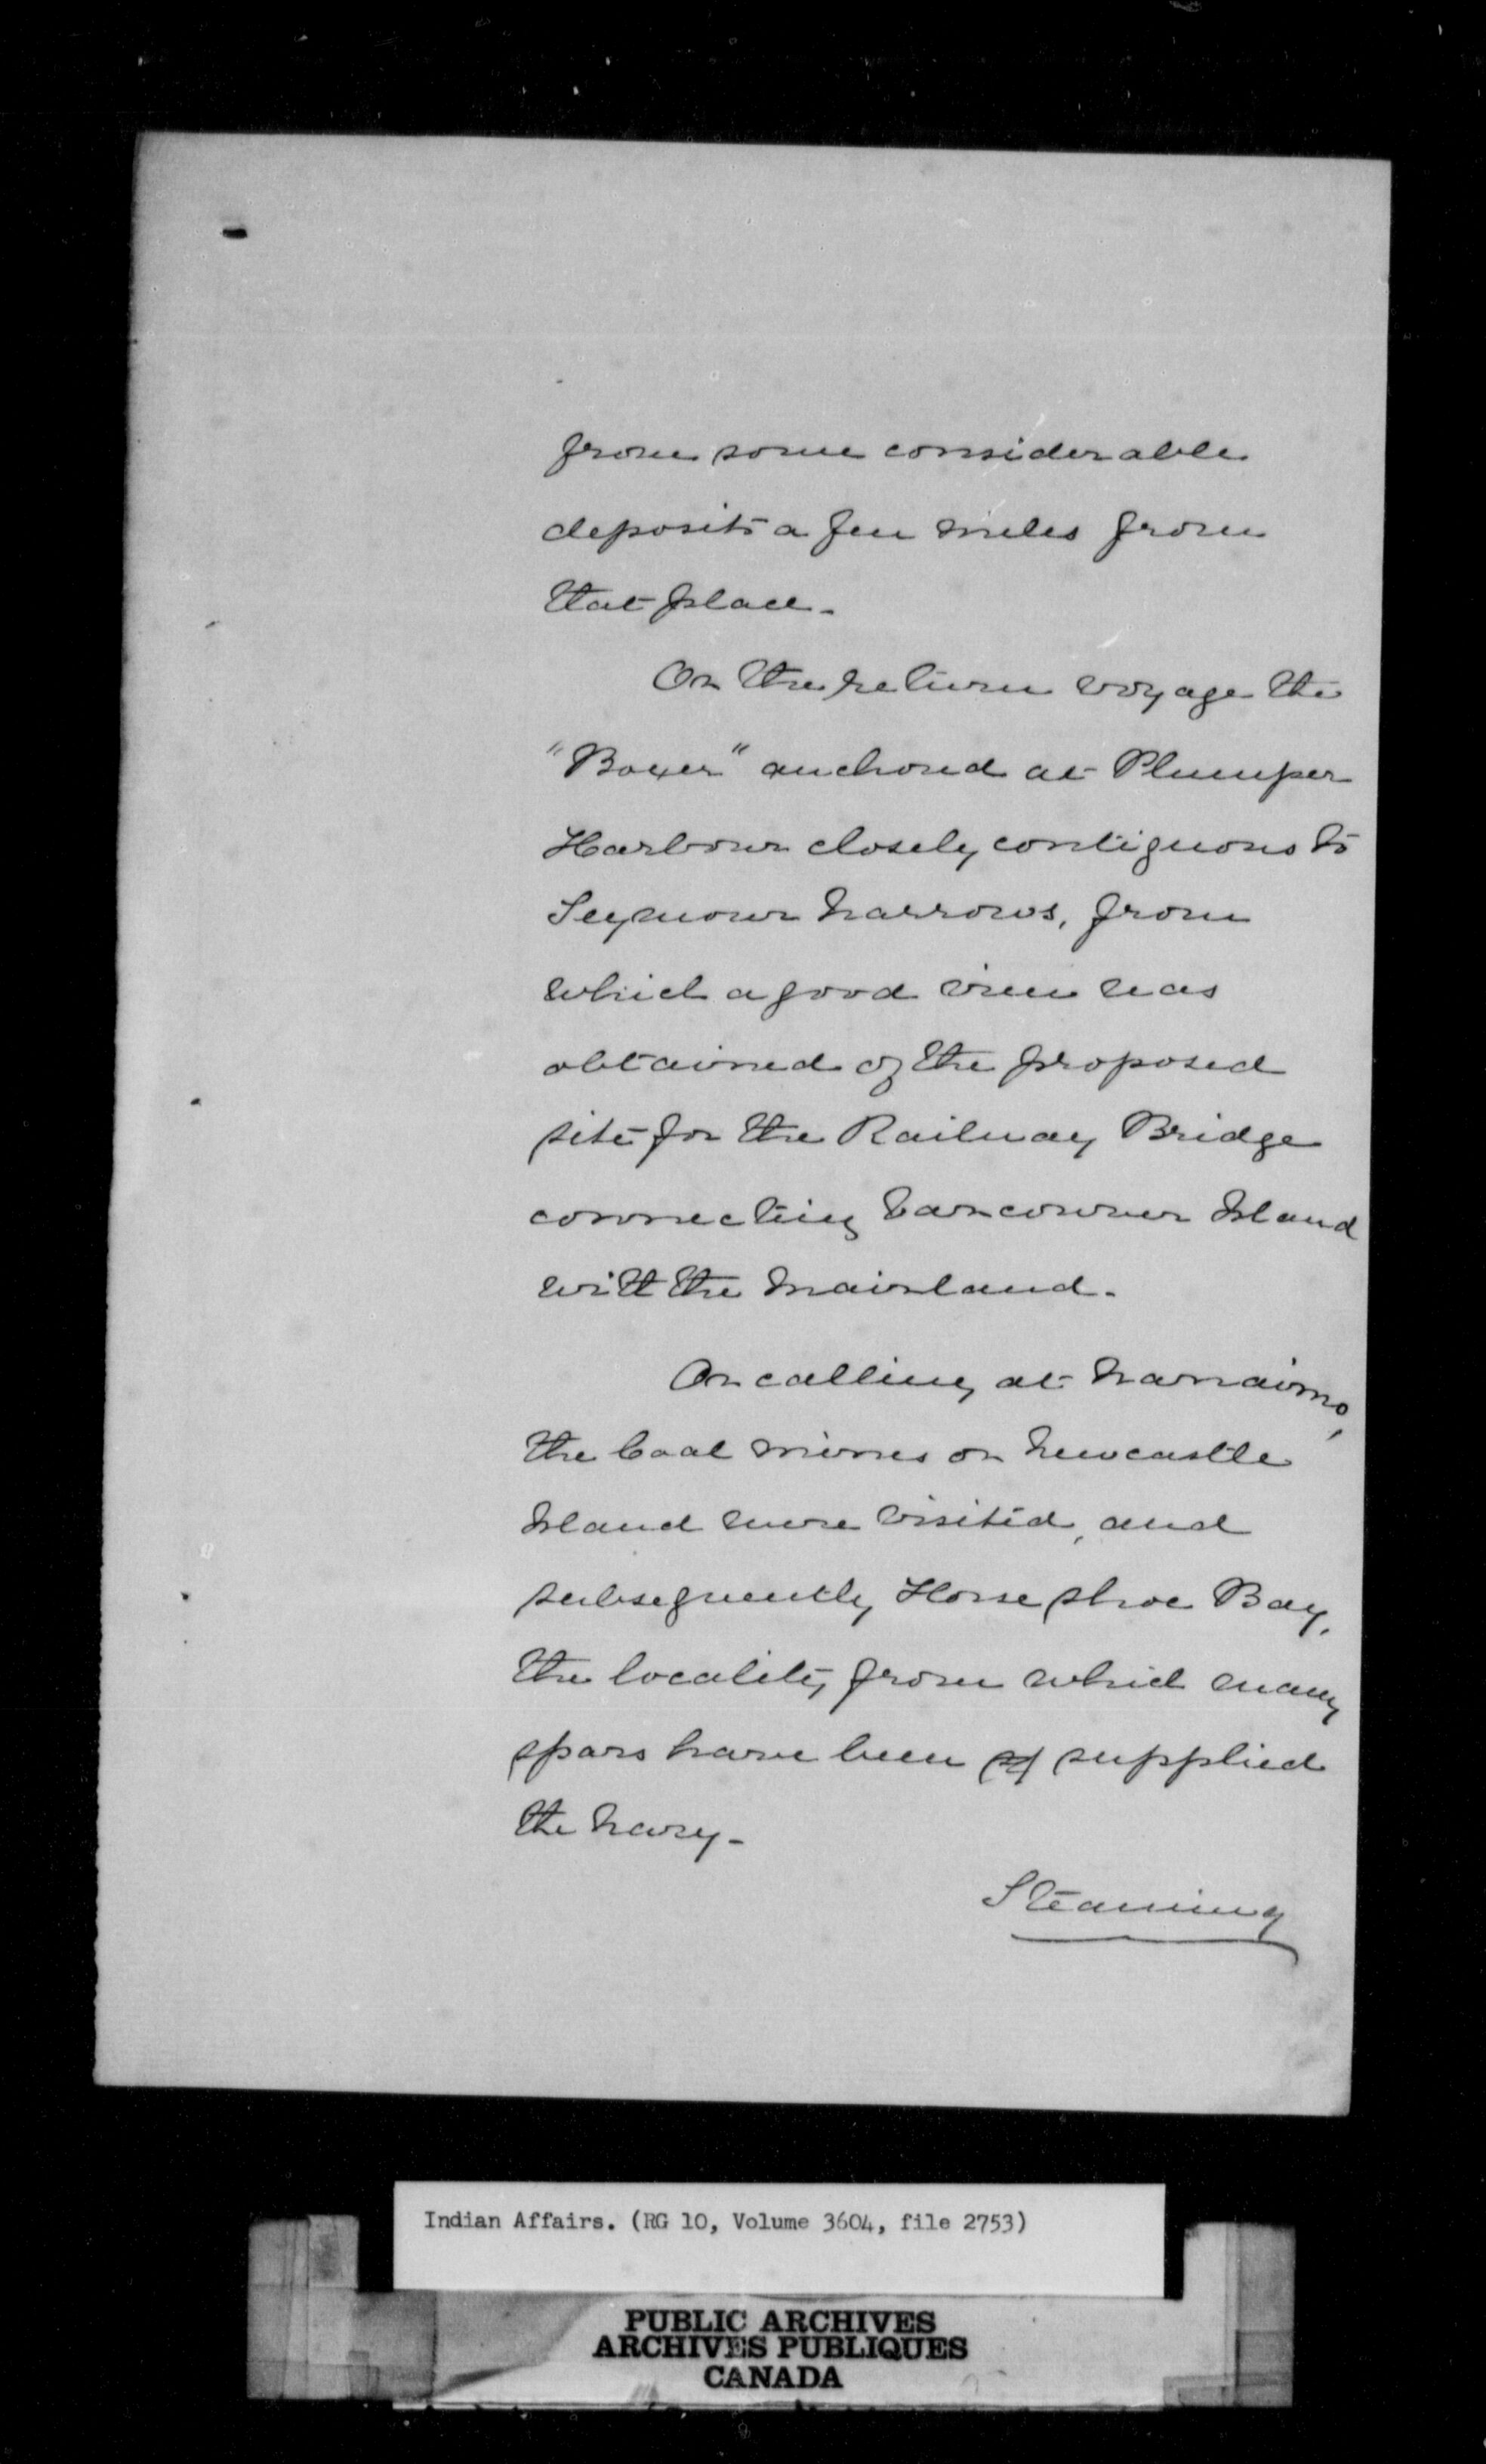 from some considerable
deposits a few miles from
that place.
On the return voyage the
"Boxer" anchored at Plumper
Harbour closely contiguous to
Seymour Narrows, from
which a good view was
obtained of the proposed
site for the Railway Bridge
connecting Vancouver Island
with the Mainland.
On calling at Nanaimo,
the Coal mines on Newcastle
Island were visited, and
subsequently Horse shoe Bay,
the locality from which many
spars have been supplied
the Navy.
Steaming
Indian Affairs. (RG 10, Volume 3604, file 2753)
PUBLIC ARCHIVES
ARCHIVES PUBLIQUES
CANADA